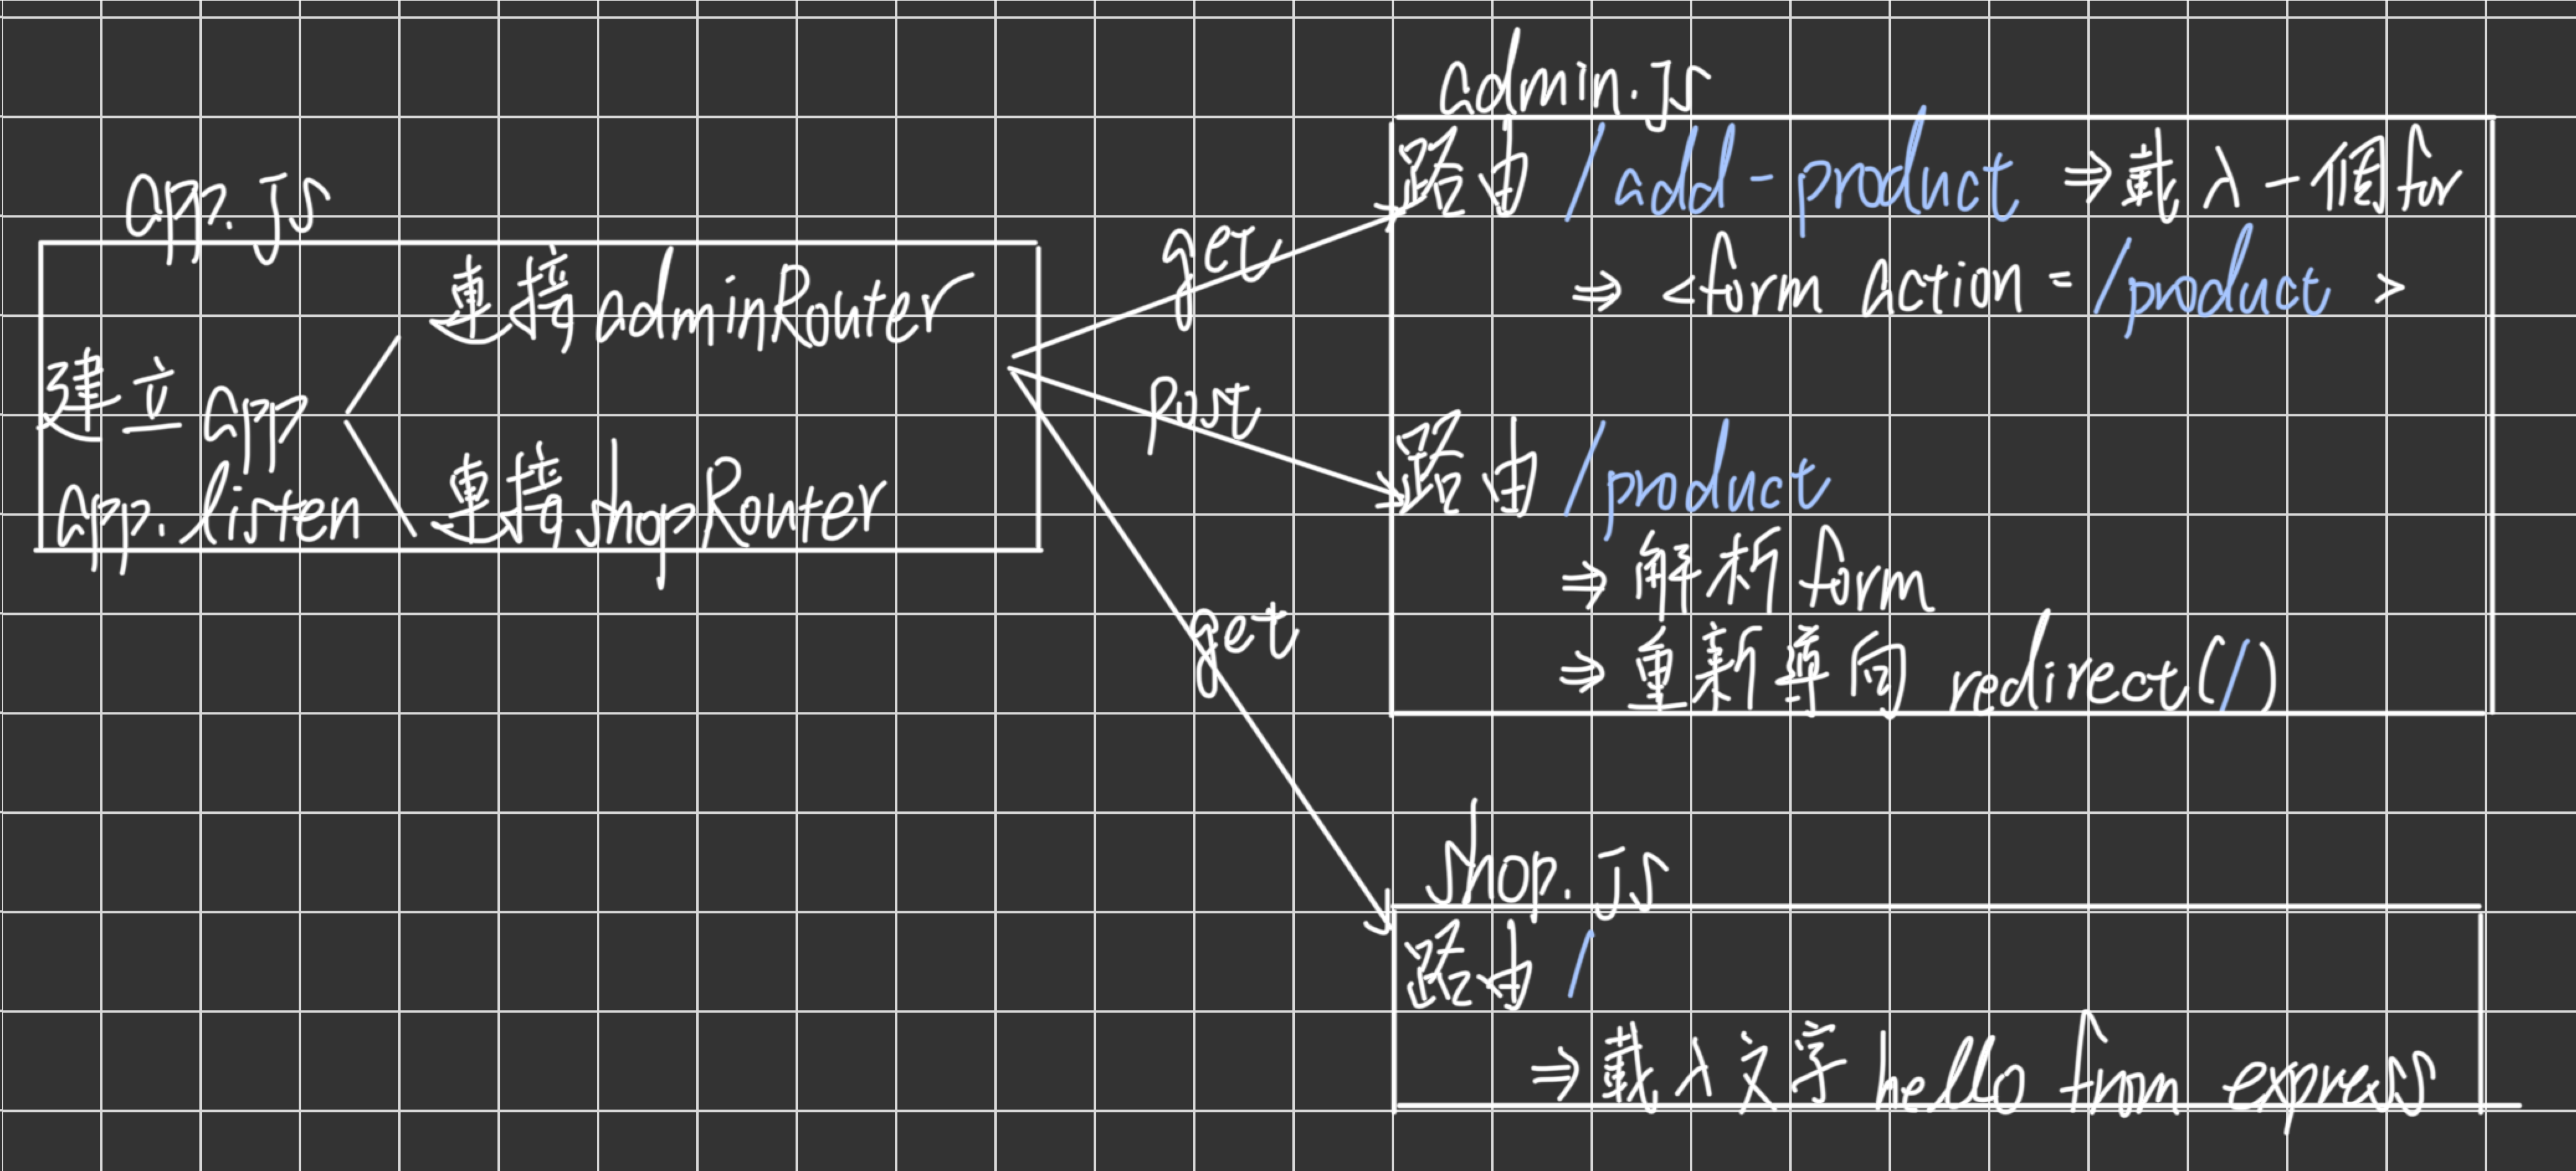 app.js
連接adminRouter
建立app
app.listen
連接shopRouter
get
post
get
admin.js
路由 /add-product ⇒載入一個for
⇒ <form action = /product >
路由 /product
⇒ 解析form
⇒ 重新導向 redirect(/)
shop.js
路由 /
⇒載入文字 hello from express